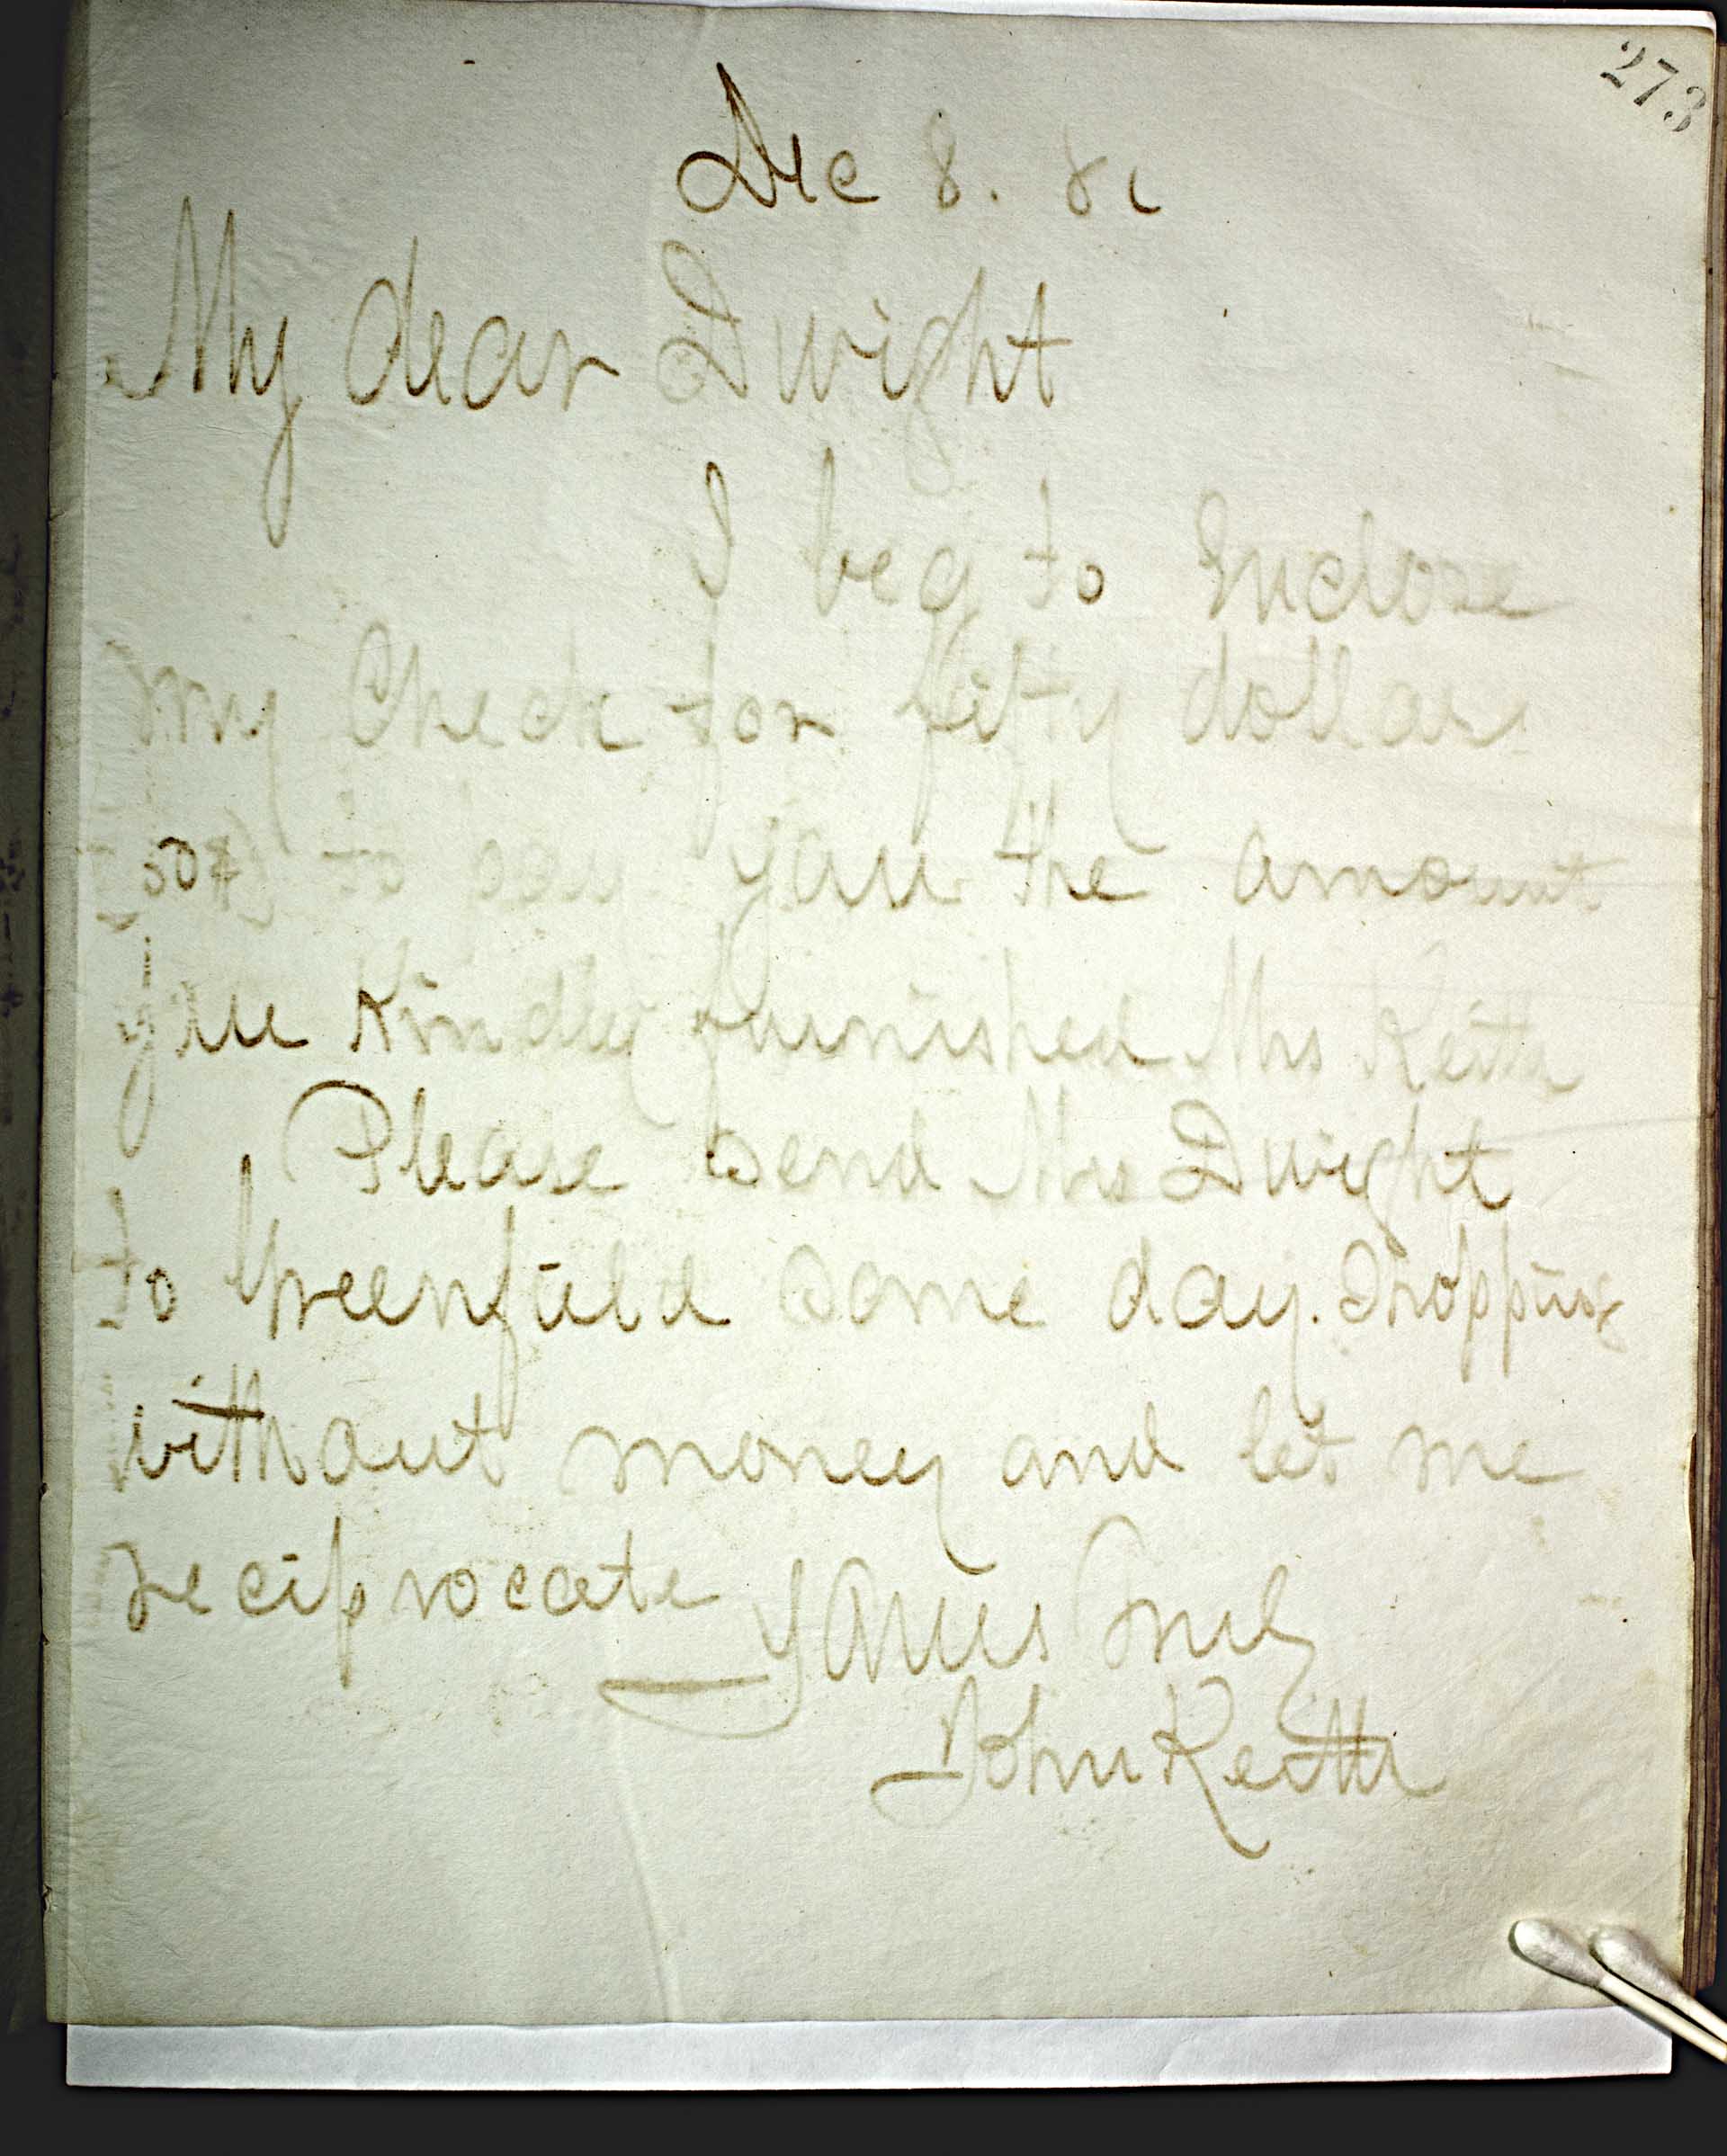 273
Dec 8. 81
My dear Dwight
I beg to Enclose
my Check for fifty dollars
(50$) to pay you the amount
you Kindly furnished Mrs Keith
Please send Mrs Dwight
to Greenfield some day. Shopping
without money and let me
reciprocate
Yours Truly
John Keith